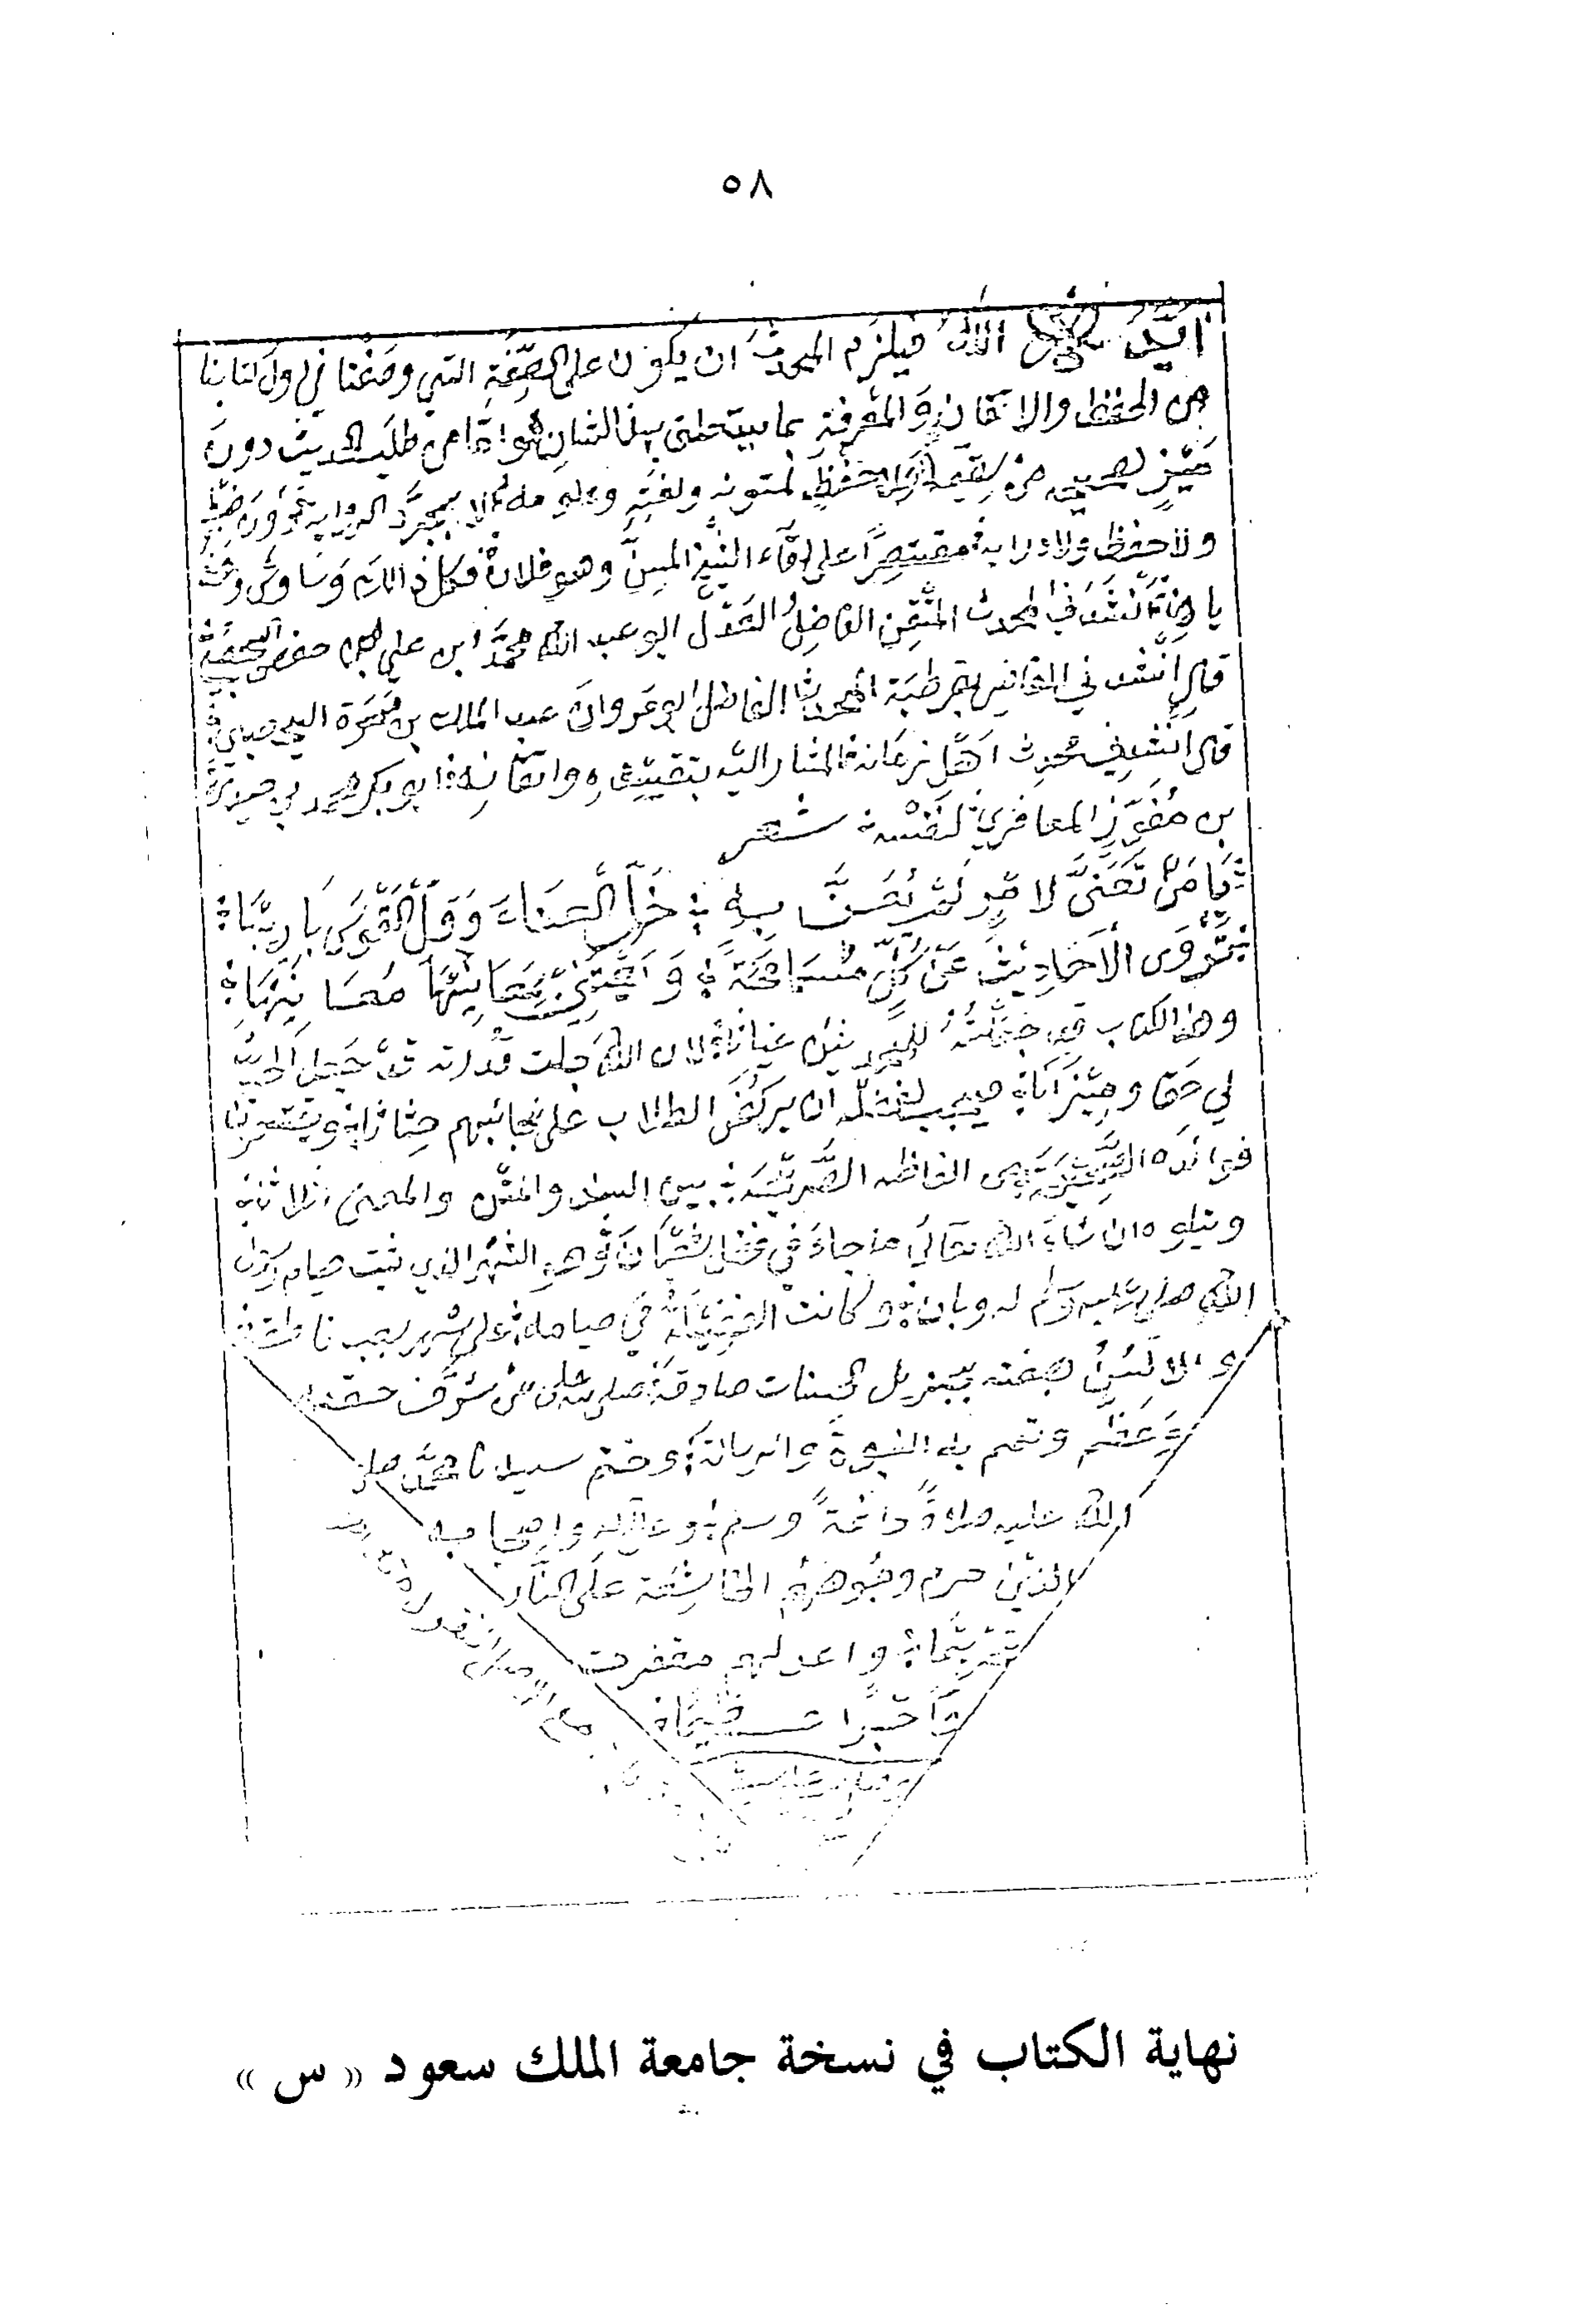 ٥٨
الله فيلزم المحدث ان يكون على الصفة التي وصفنا في اول كتابنا
من الحفظ والاتقان والمعرفة بما يتعلق بهذا الشان واما من طلب الحديث دون
تميز صحيحه من سقيمه ولا حفظ لمتونه ولغته وعلومه الا بمجرد الرواية دون ضبط
ولا حفظ ولا دراية مقتصرا على لقاء الشيخ المسن وهو فلان فكل ذلك وساوس
انشدني المحدث المتقن الفاضل العدل ابو عبد الله محمد ابن علي بن حفص اليحصبي
قال انشدني بقرطبة المحدث الفاضل ابو مروان عبد الملك بن مسرة اليحصبي
قال انشدني محدث اهل زمانه المشار اليه بتقييده واتقانه ابو بكر محمد بن حيدرة
بن مفوز المعافري لنفسه شعر
يا من تعنى لامر لم يعن به خل العناء وول القوس باريها
تروى الاحاديث عن كل مسامحة وانما لمعانيها معانيها
وهذا الكتاب قد جعلته للمريدين غياثا لان الله جلت قدرته قد جعل
لي حقا وميراثا فيجب لفضله ان يركض الطلاب على نجائبهم حثاثا
فوائده الفاظه بين السند والمتن والمعنى اثلاثا
ويتلوه ان شاء الله تعالى ما جاء في فضل شعبان وهو الشهر الذي ثبت صيام رسول
الله صلى الله عليه وسلم له وبان وكانت الفضيلة في صيامه على شهر رجب ناطقة
والالسن بصفته بتنزيل الحسنات صادقة صلى الله على من شرف حقه
وعظم وتمم به النبوة والرسالة وختم سيدنا محمد صلى
الله عليه صلاة دائمة وسلم وعلى اله واصحابه
الذين حرم وجوههم الخاشعة على النار
تحريما واعد لهم مغفرة
واجرا عظيما
نهاية الكتاب في نسخة جامعة الملك سعود « س »